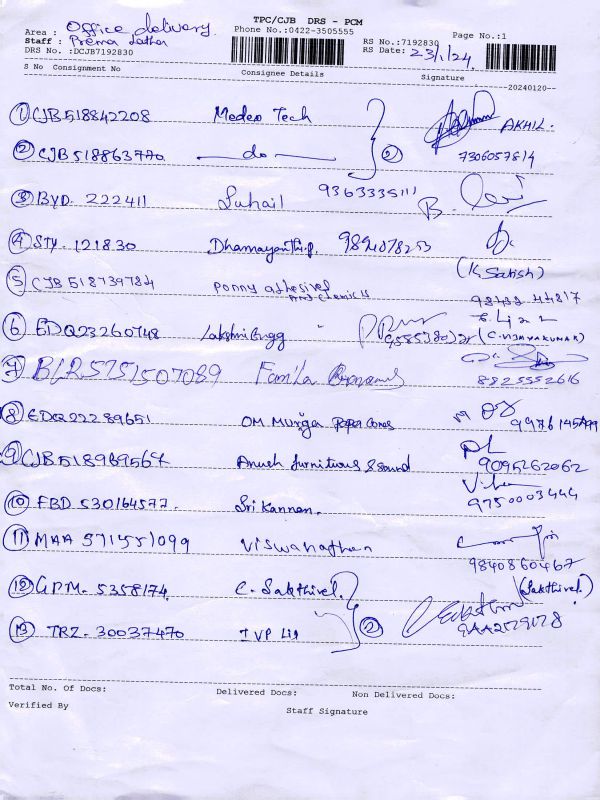 TPC/CJB DRS - PCM
Area : Office delivery Phone No.:0422-3505555 Page No.:1
Staff : Prema Latha RS No.:7192830
DRS No. :DCJB7192830 RS Date: 23/1/24,
S No Consignment No Consignee Details Signature
--20240120--
1 CJB518842208 Medeo Tech AKHIL.
2 CJB 518863770 do 2 7306057814
3 BYD. 222411 Suhail 9363335111
4 STY. 121830 Dhamayanthi.p
(K. Satish)
5 CJB 518739784 ponny adhesives
and chemicals
6 EDQ23260748 Lakshmi Engg (C. VIJAYAKUMAR)
7 BLR5751507089 Famila
8825552616
8 EDQ22289651 OM Muruga Paper Cones
9 CJB518969567 Anush furnitures & sound 9095262062
10 FBD 530164577. Sri Kannan. 9750003444
11 MAA 571551099 Viswanathan
9840860467
12 GPM. 5358174. C. Sakthivel. (Sakthivel.)
13 TRZ. 30037470 TVP Lig 2
Total No. Of Docs: Delivered Docs: Non Delivered Docs:
Verified By Staff Signature